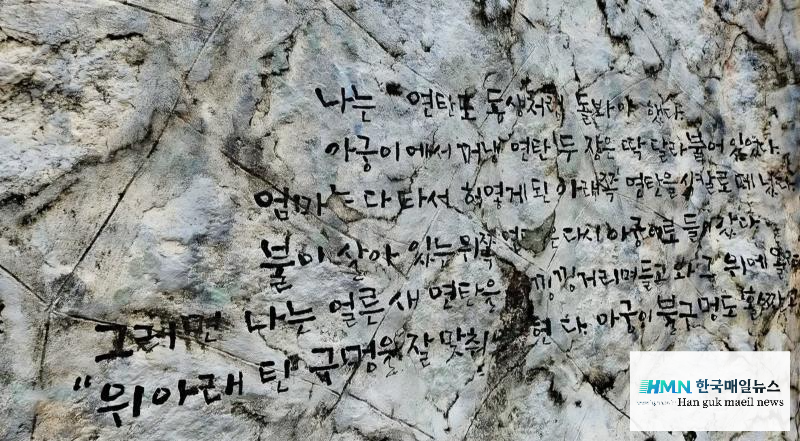 나는 연탄도 동생처럼 돌봐야 했다
아궁이에서 꺼낸 연탄 두 장은 딱 달라붙어 있었다
엄마는 다 타서 허옇게 된 아래쪽 연탄을 식칼로 떼 냈다
불이 살아 있는 위쪽 은 다시 아궁이로 들어갔다
그러면 나는 얼른 새 연탄을 낑낑거리며 들고 와 그 위에
"위아래 탄 구멍을 잘 맞춰야 한다. 아궁이 불구멍도
HMN 한국매일뉴스
Han guk maeil news